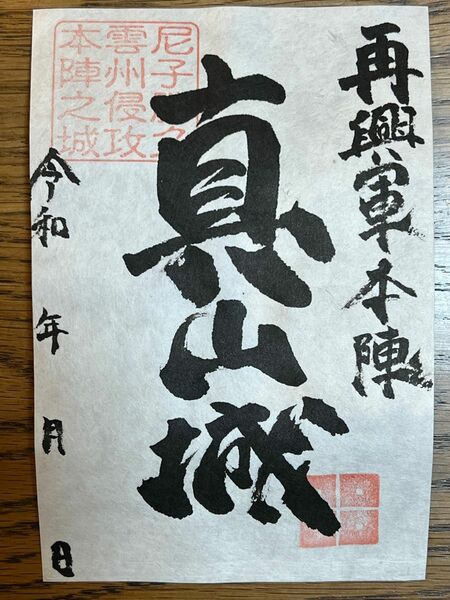 再興軍本陣
真山城
尼子勝久
雲州侵攻
本陣之城
令和 年 月 日